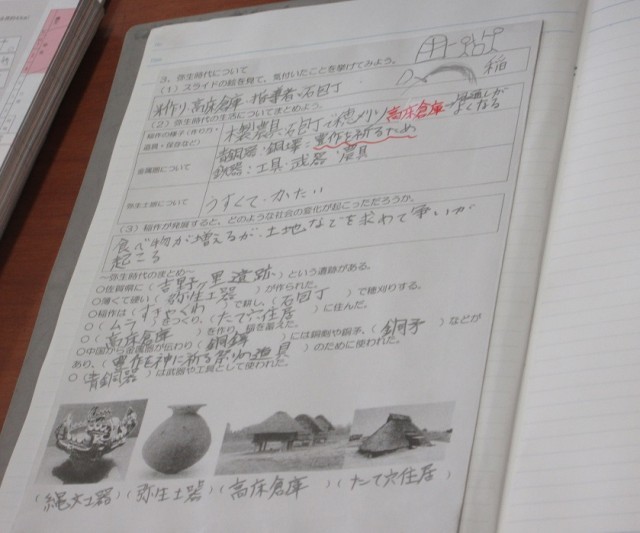 3．弥生時代について
（1）スライドの絵を見て、気付いたことを挙げてみよう。
米作り・高床倉庫・指導者・石包丁
稲
（2）弥生時代の生活についてまとめよう。
稲作の様子（作り方・道具・保存など）
木製農具・石包丁で穂メリ 高床倉庫→風通しがよくなる
金属器について
青銅器・銅鐸：豊作を祈るため
鉄器：工具・武器・農具
弥生土器について
うすくて・かたい
（3）稲作が発展すると、どのような社会の変化が起こっただろうか。
食べ物が増えるが、土地などを求めて争いが
起こる
～弥生時代のまとめ～
○佐賀県に（吉野ヶ里遺跡）という遺跡がある。
○薄くて硬い（弥生土器）が作られた。
○稲作は（すきやくわ）で耕し、（石包丁）で穂刈りする。
○（ムラ）をつくり、（たて穴住居）に住んだ。
○（高床倉庫）を作り、稲を蓄えた。
○中国から金属器が伝わり（銅鐸）には銅剣や銅矛、（銅矛）などが
あり、（豊作を神に祈る祭りの道具）のために使われた。
○（青銅器）は武器や工具として使われた。
（縄文土器）（弥生土器）（高床倉庫）（たて穴住居）